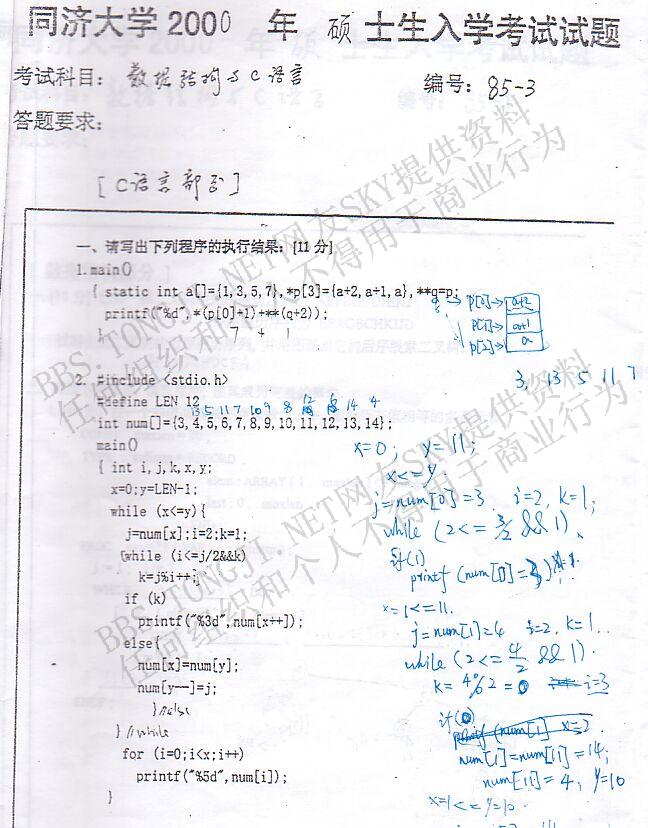 同济大学2000 年 硕 士生入学考试试题
考试科目: 数据结构与C语言 编号: 85-3
答题要求:
[C语言部分]
一、请写出下列程序的执行结果: [11分]
1. main()
{ static int a[]={1,3,5,7},*p[3]={a+2,a+1,a},**q=p;
printf("%d",*(p[0]+1)+**(q+2));
}
7 + 1
q → p[0] → a+2
p[1] → a+1
p[2] → a
3, 13 5 11 7
2. #include <stdio.h>
=define LEN 12
int num[]={3,4,5,6,7,8,9,10,11,12,13,14};
main()
{ int i,j,k,x,y;
x=0;y=LEN-1;
while (x<=y){
j=num[x];i=2;k=1;
while (i<=j/2&&k)
k=j%i++;
if (k)
printf("%3d",num[x++]);
else{
num[x]=num[y];
num[y--]=j;
}//else
}//while
for (i=0;i<x;i++)
printf("%5d",num[i]);
}
x=0; y=11;
x<=y
j=num[0]=3 i=2, k=1;
while (2<=3/2 &&1)
if(1)
printf (num[0]=3)
x=1<=11.
j=num[1]=4 i=2, k=1
while (2<=4/2 &&1)
k=4%2=0 i=3
num[1]=num[11]=14;
num[11]=4, y=10
x=1<=y=10
BBS.TONGJI.NET网友SKY提供资料
任何组织和个人不得用于商业行为
BBS.TONGJI.NET网友SKY提供资料
任何组织和个人不得用于商业行为